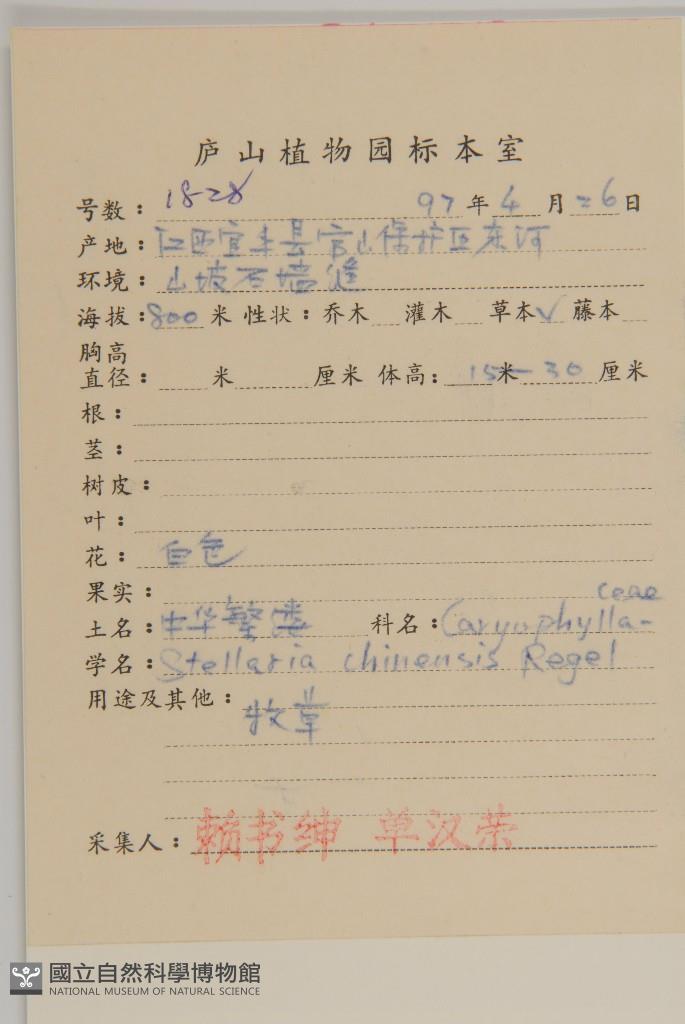 庐山植物园标本室
号数：18-28 97年4月26日
产地：江西宜丰县官山保护区东河
环境：山坡石墙缝
海拔：800米 性状：乔木 灌木 草本√ 藤本
胸高
直径： 米 厘米 体高： 15米-30厘米
根：
茎：
树皮：
叶：
花：白色
果实：
土名：中华繁缕 科名：Caryophylla-ceae
学名：Stellaria chinensis Regel
用途及其他：牧草
采集人：赖书绅 单汉荣
國立自然科學博物館
NATIONAL MUSEUM OF NATURAL SCIENCE